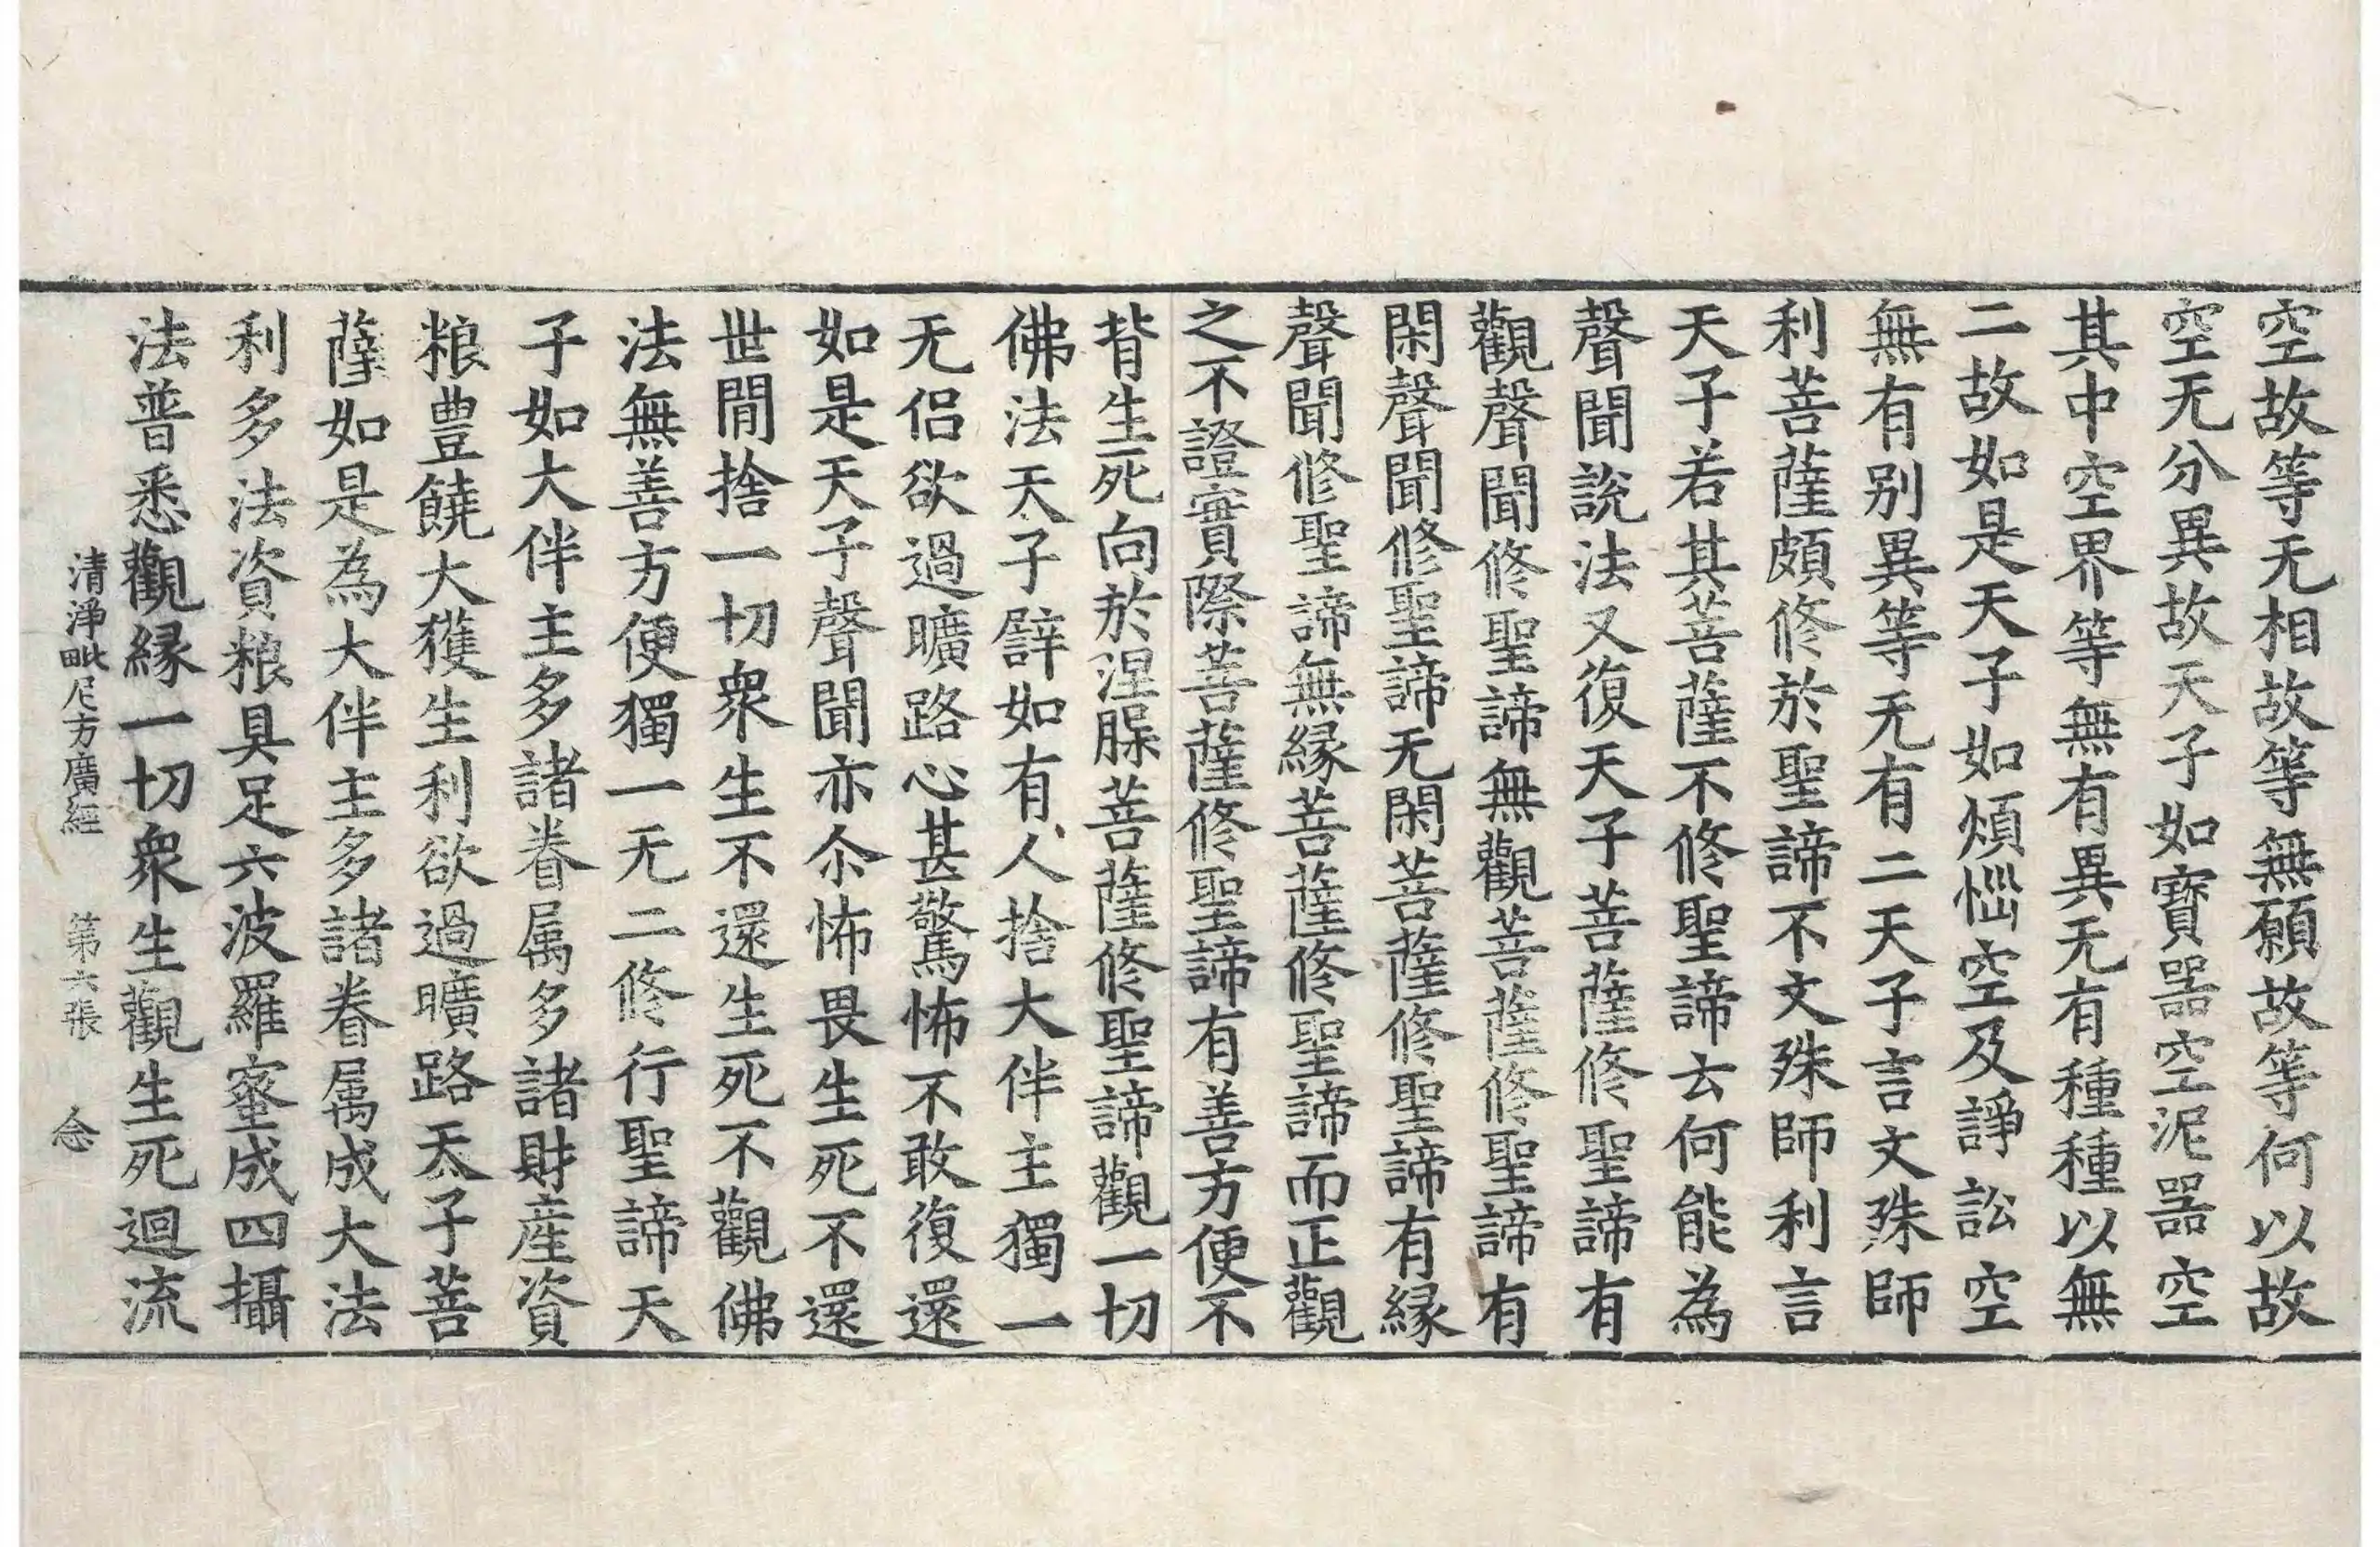 空故等无相故等無願故等何以故
空无分異故天子如寶器空泥器空
其中空界等無有異无有種種以無
二故如是天子如煩惱空及諍訟空
無有别異等无有二天子言文殊師
利菩薩頗修於聖諦不文殊師利言
天子若其菩薩不修聖諦云何能為
聲聞說法又復天子菩薩修聖諦有
觀聲聞修聖諦無觀菩薩修聖諦有
閑聲聞修聖諦无閑菩薩修聖諦有緣
聲聞修聖諦無緣菩薩修聖諦而正觀
之不證實際菩薩修聖諦有善方便不
背生死向於涅槃菩薩修聖諦觀一切
佛法天子譬如有人捨大伴主獨一
无侣欲過曠路心甚驚怖不敢復還
如是天子聲聞亦尒怖畏生死不還
世間捨一切衆生不還生死不觀佛
法無善方便獨一无二修行聖諦天
子如大伴主多諸眷属多諸財産資
粮豊饒大獲生利欲過曠路天子菩
薩如是為大伴主多諸眷属成大法
利多法資粮具足六波羅蜜成四攝
法普悉觀緣一切衆生觀生死迴流
清淨毗尼方廣經 第六張 念